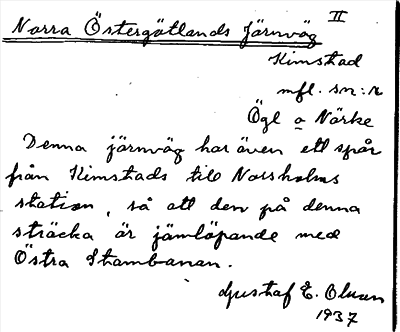 Norra Östergötlands Järnväg II
Kimstad
mfl. sn:r
Ögl o Närke
Denna järnväg har även ett spår
från Kimstads till Norsholms
station, så att den på denna
sträcka är jämlöpande med
Östra Stambanan.
Gustaf E. Olsson
1937